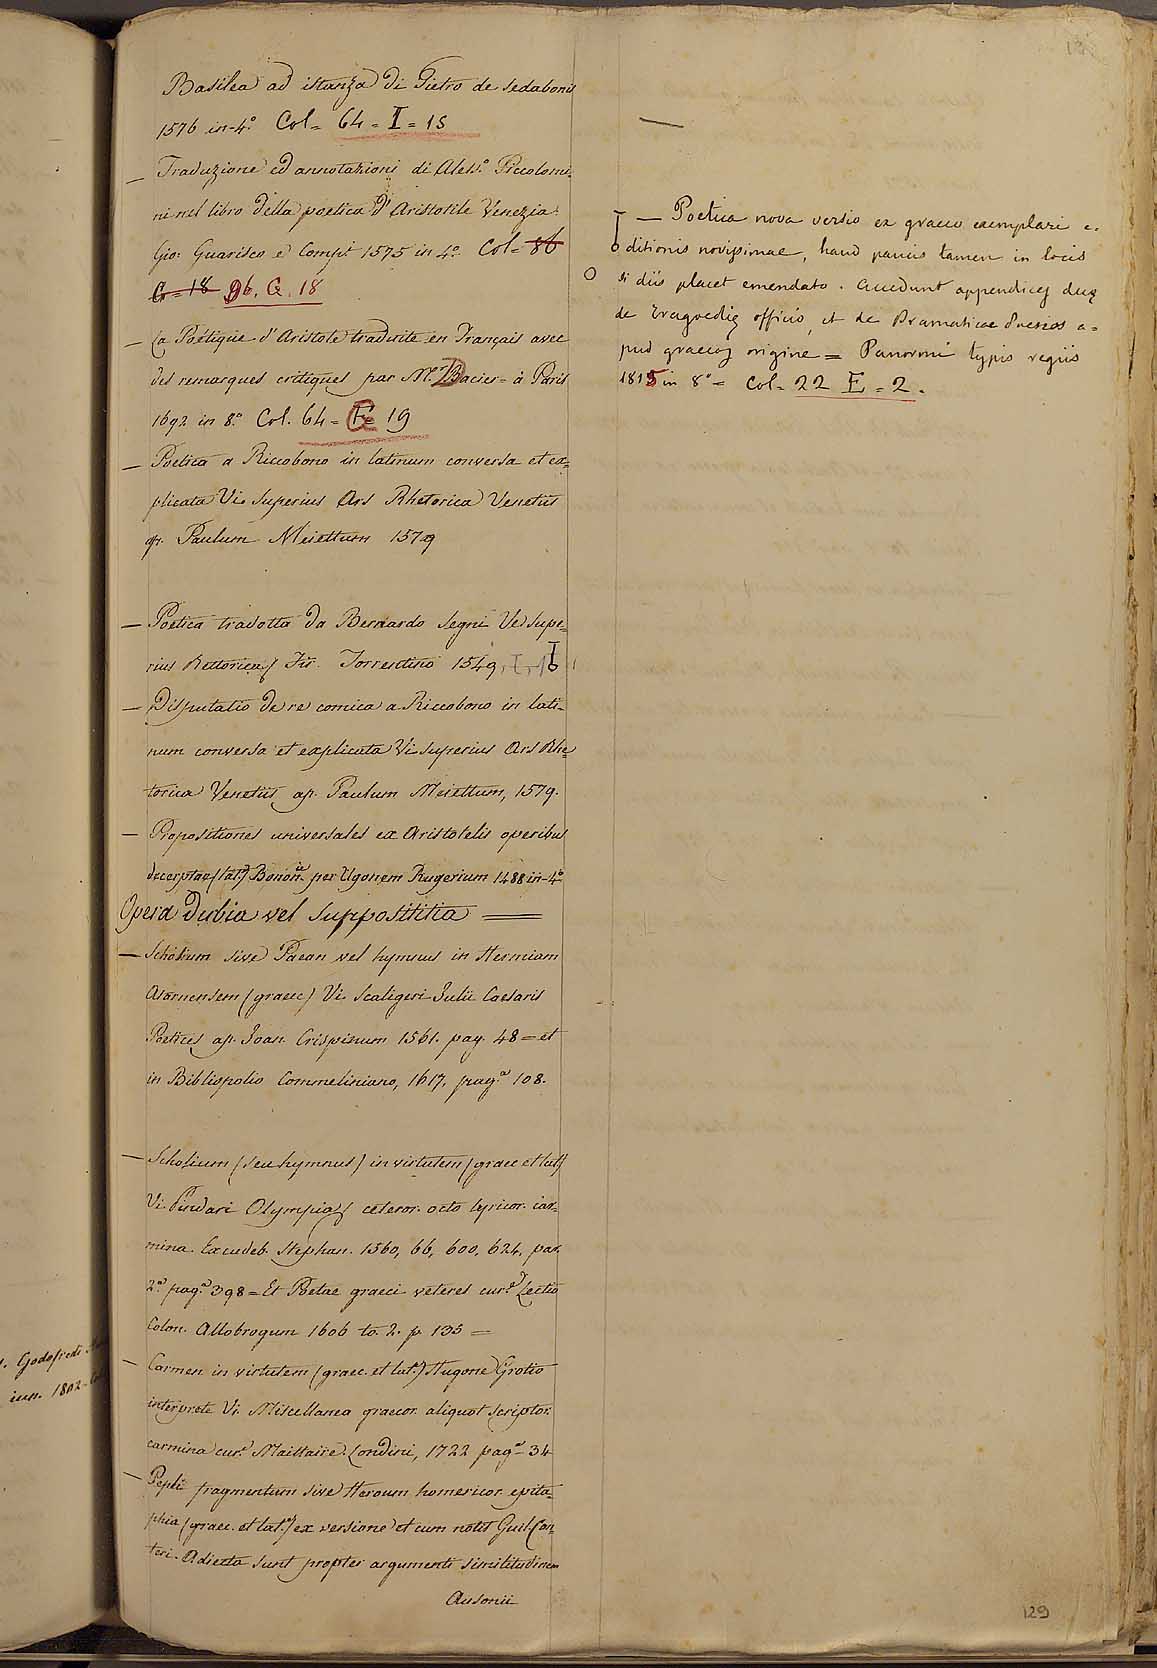 Basilea ad istanza di Pietro de Sedabonis
1576 in-4.° Col= 64 = I = 15
— Traduzione ed annotazioni di Aless.° Piccolomi-
ni nel libro della poetica d'Aristotile Venezia
Gio: Guarisco e Comp.i 1575 in 4.° Col= 86
G = 18 96. G. 18
— La Poétique d'Aristote traduite en Français avec
des remarques critiques par M.r Dacier = à Paris
1692 in 8.° Col. 64 = G 19
— Poetica a Riccobono in latinum conversa et ex=
plicata Vi. Superius Ars Rhetorica Venetiis
ap. Paulum Meiettum 1579
— Poetica tradotta da Bernardo Segni Ve Supe=
rius Rettorica Fir. Torrentino 1549
— Disputatio de re comica a Riccobono in lati-
num conversa et explicata Vi superius Ars Rhe
torica Venetiis ap. Paulum Meiettum, 1579.
— Propositiones universales ex Aristotelis operibus
decerptae (lat.e) Bonon.ie per Ugonem Rugerium 1488 in-4.°
Opera dubia vel supposititia ═
— Scholium sive Paean vel hymnus in Hermiam
Atarnensem (graec) Vi. Scaligeri Julii Caesaris
Poetices ap. Joan. Crispinum 1561. pag. 48 = et
in Bibliopolio Commeliniano, 1617. pag.a 108.
— Scholium (seu hymnus) in virtutem (graec et lat)
Vi. Pindari Olympia ceteror. octo lyricor. car=
mina. Excudeb. Stephan. 1560, 66, 600, 624, par.
2.a pag.a 398 = Et Poetae graeci veteres cur.e Lectio
Colon. Allobrogum 1606 to. 2. p. 135 =
— Carmen in virtutem (graec. et lat.e) Hugone Grotio
interprete Vi. Miscellanea graecor. aliquot scriptor.
carmina cur.e Maittaire. Londini, 1722 pag.a 34
— Pepli fragmentum sive Heroum homericor. epita=
phia (graec. et lat.e) ex versione et cum notis Guil. Can=
teri. Adiecta sunt propter argumenti similitudinem
Ausonii
— Poetica nova versio ex graeco exemplari e.
ditionis novissimae, haud paucis tamen in locis
si diis placet emendato. Accedunt appendices duę
de Tragoedię officio, et de Dramaticae Poesios a=
pud graecos origine = Panormi typis regiis
1815 in 8.° = Col= 22 E = 2.
. Godofredi
iun. 1802
129